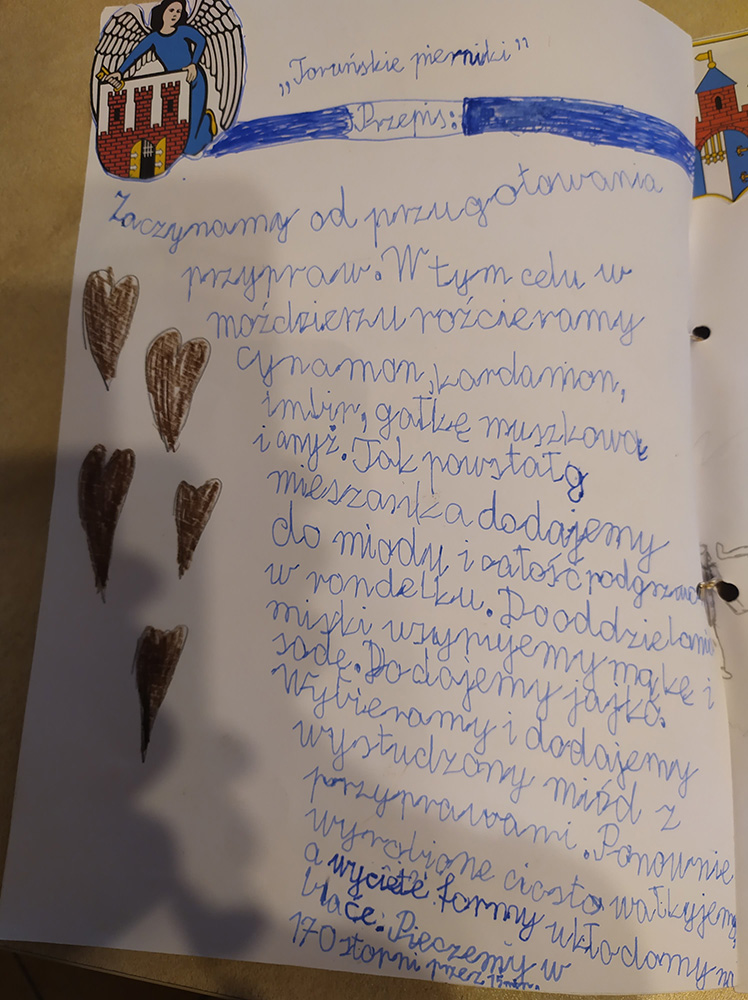 „Toruńskie pierniki”
Przepis:
Zaczynamy od przygotowania
przypraw. W tym celu w
moździerzu roźcieramy
cynamon, kardamon,
imbir, gałkę muszkową
i anyż. Tak powstałą
mieszanka dodajemy
do miodu i całość podgrzewa
w rondelku. Do oddzielania
miski wsypujemy mąkę i
sodę. Dodajemy jajko.
Wybieramy i dodajemy
wystudzony miód z
przyprawami. Ponownie
wyrobione ciasto wałkujemy
a wycięte formy układamy na
blače. Pieczemy w
170 stopni przez 15 min.